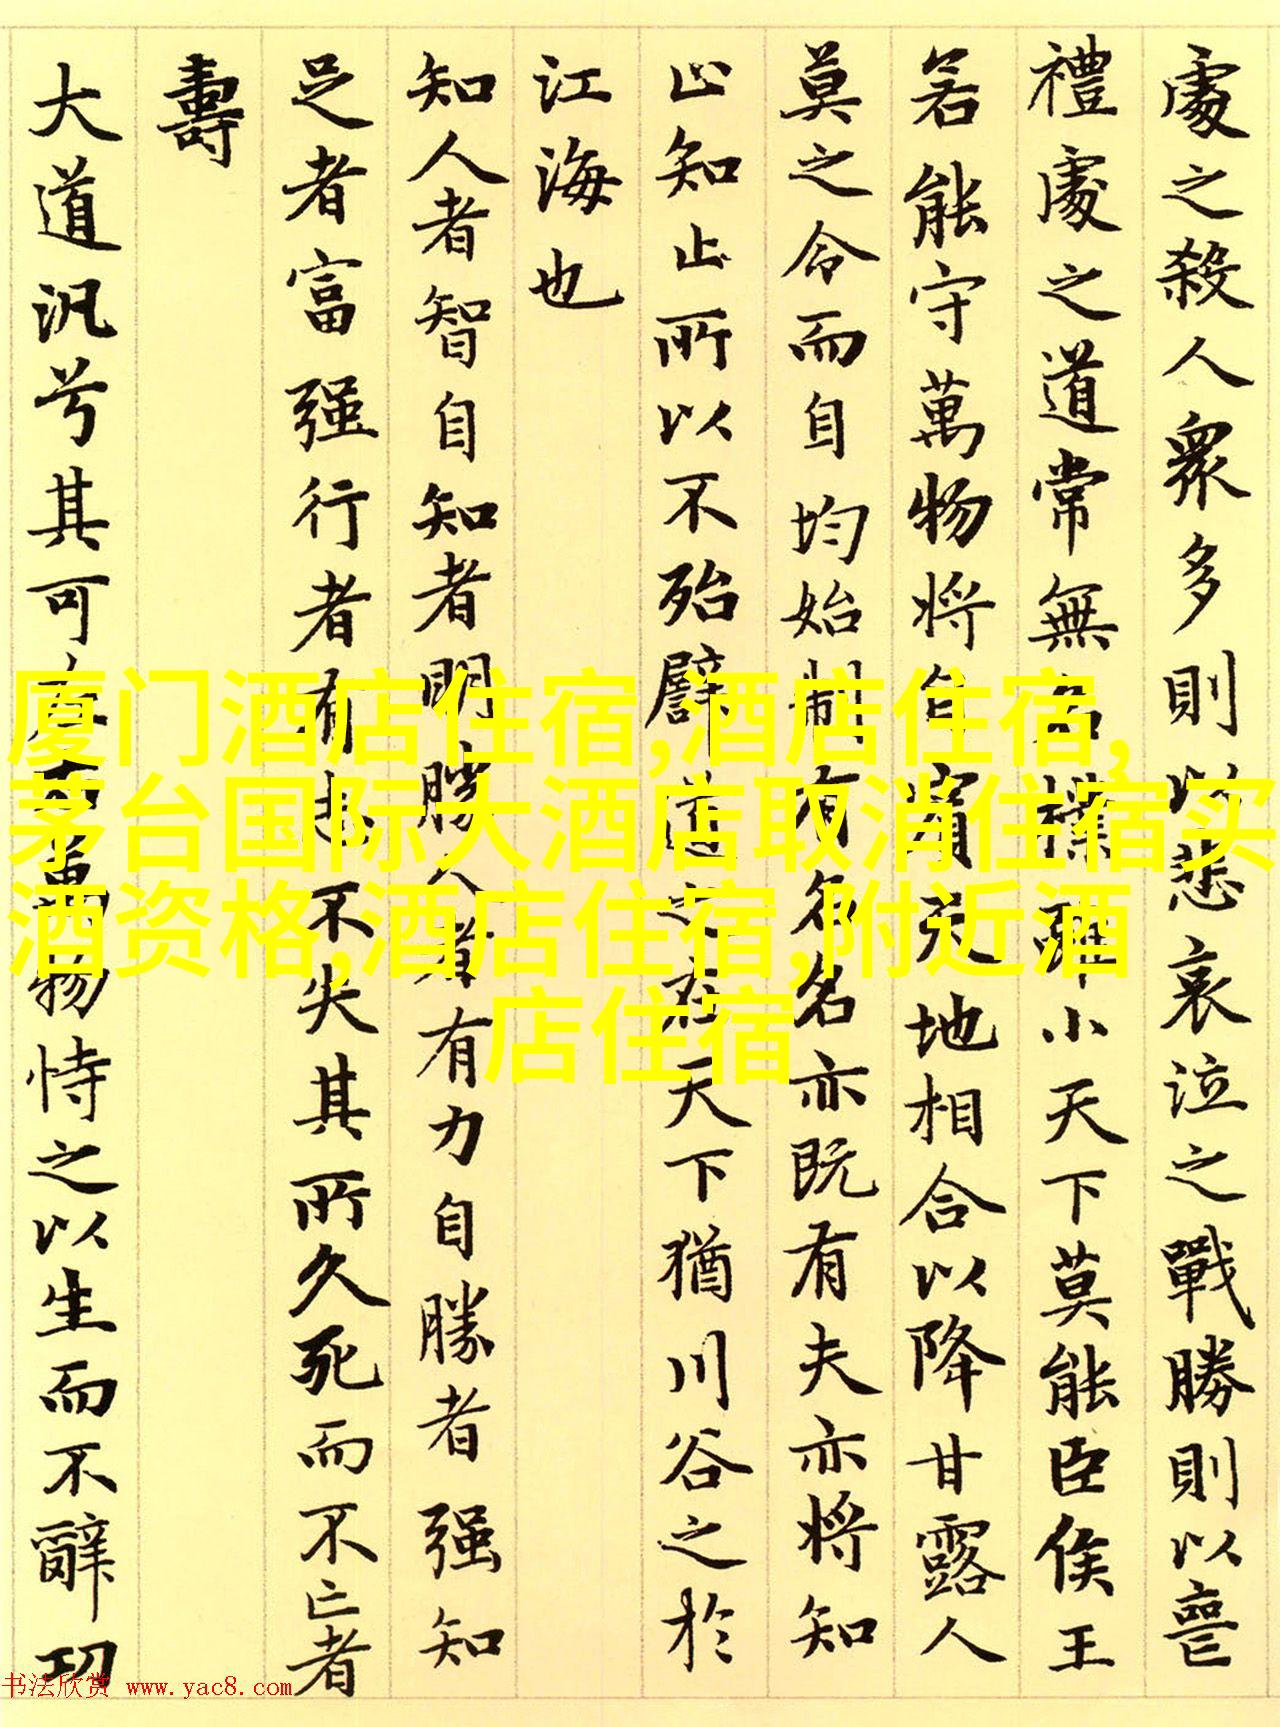 處之殺人眾多則以悲哀泣之戰勝則以喪
禮處之道常無名樸雖小天下莫能臣侯王
若能守萬物將自賓天地相合以降甘露人
莫之令而自均始制有名名亦既有夫亦將知
止知止所以不殆譬道之在天下猶川谷之於
江海也
知人者智自知者明勝人者有力自勝者强知
足者富强行者有志不失其所久死而不亡者
壽
大道汎兮其可左右萬物恃之以生而不辭功
厦门酒店住宿,酒店住宿,
茅台国际大酒店取消住宿买
酒资格,酒店住宿,附近酒
店住宿
书法欣赏 www.yac8.com